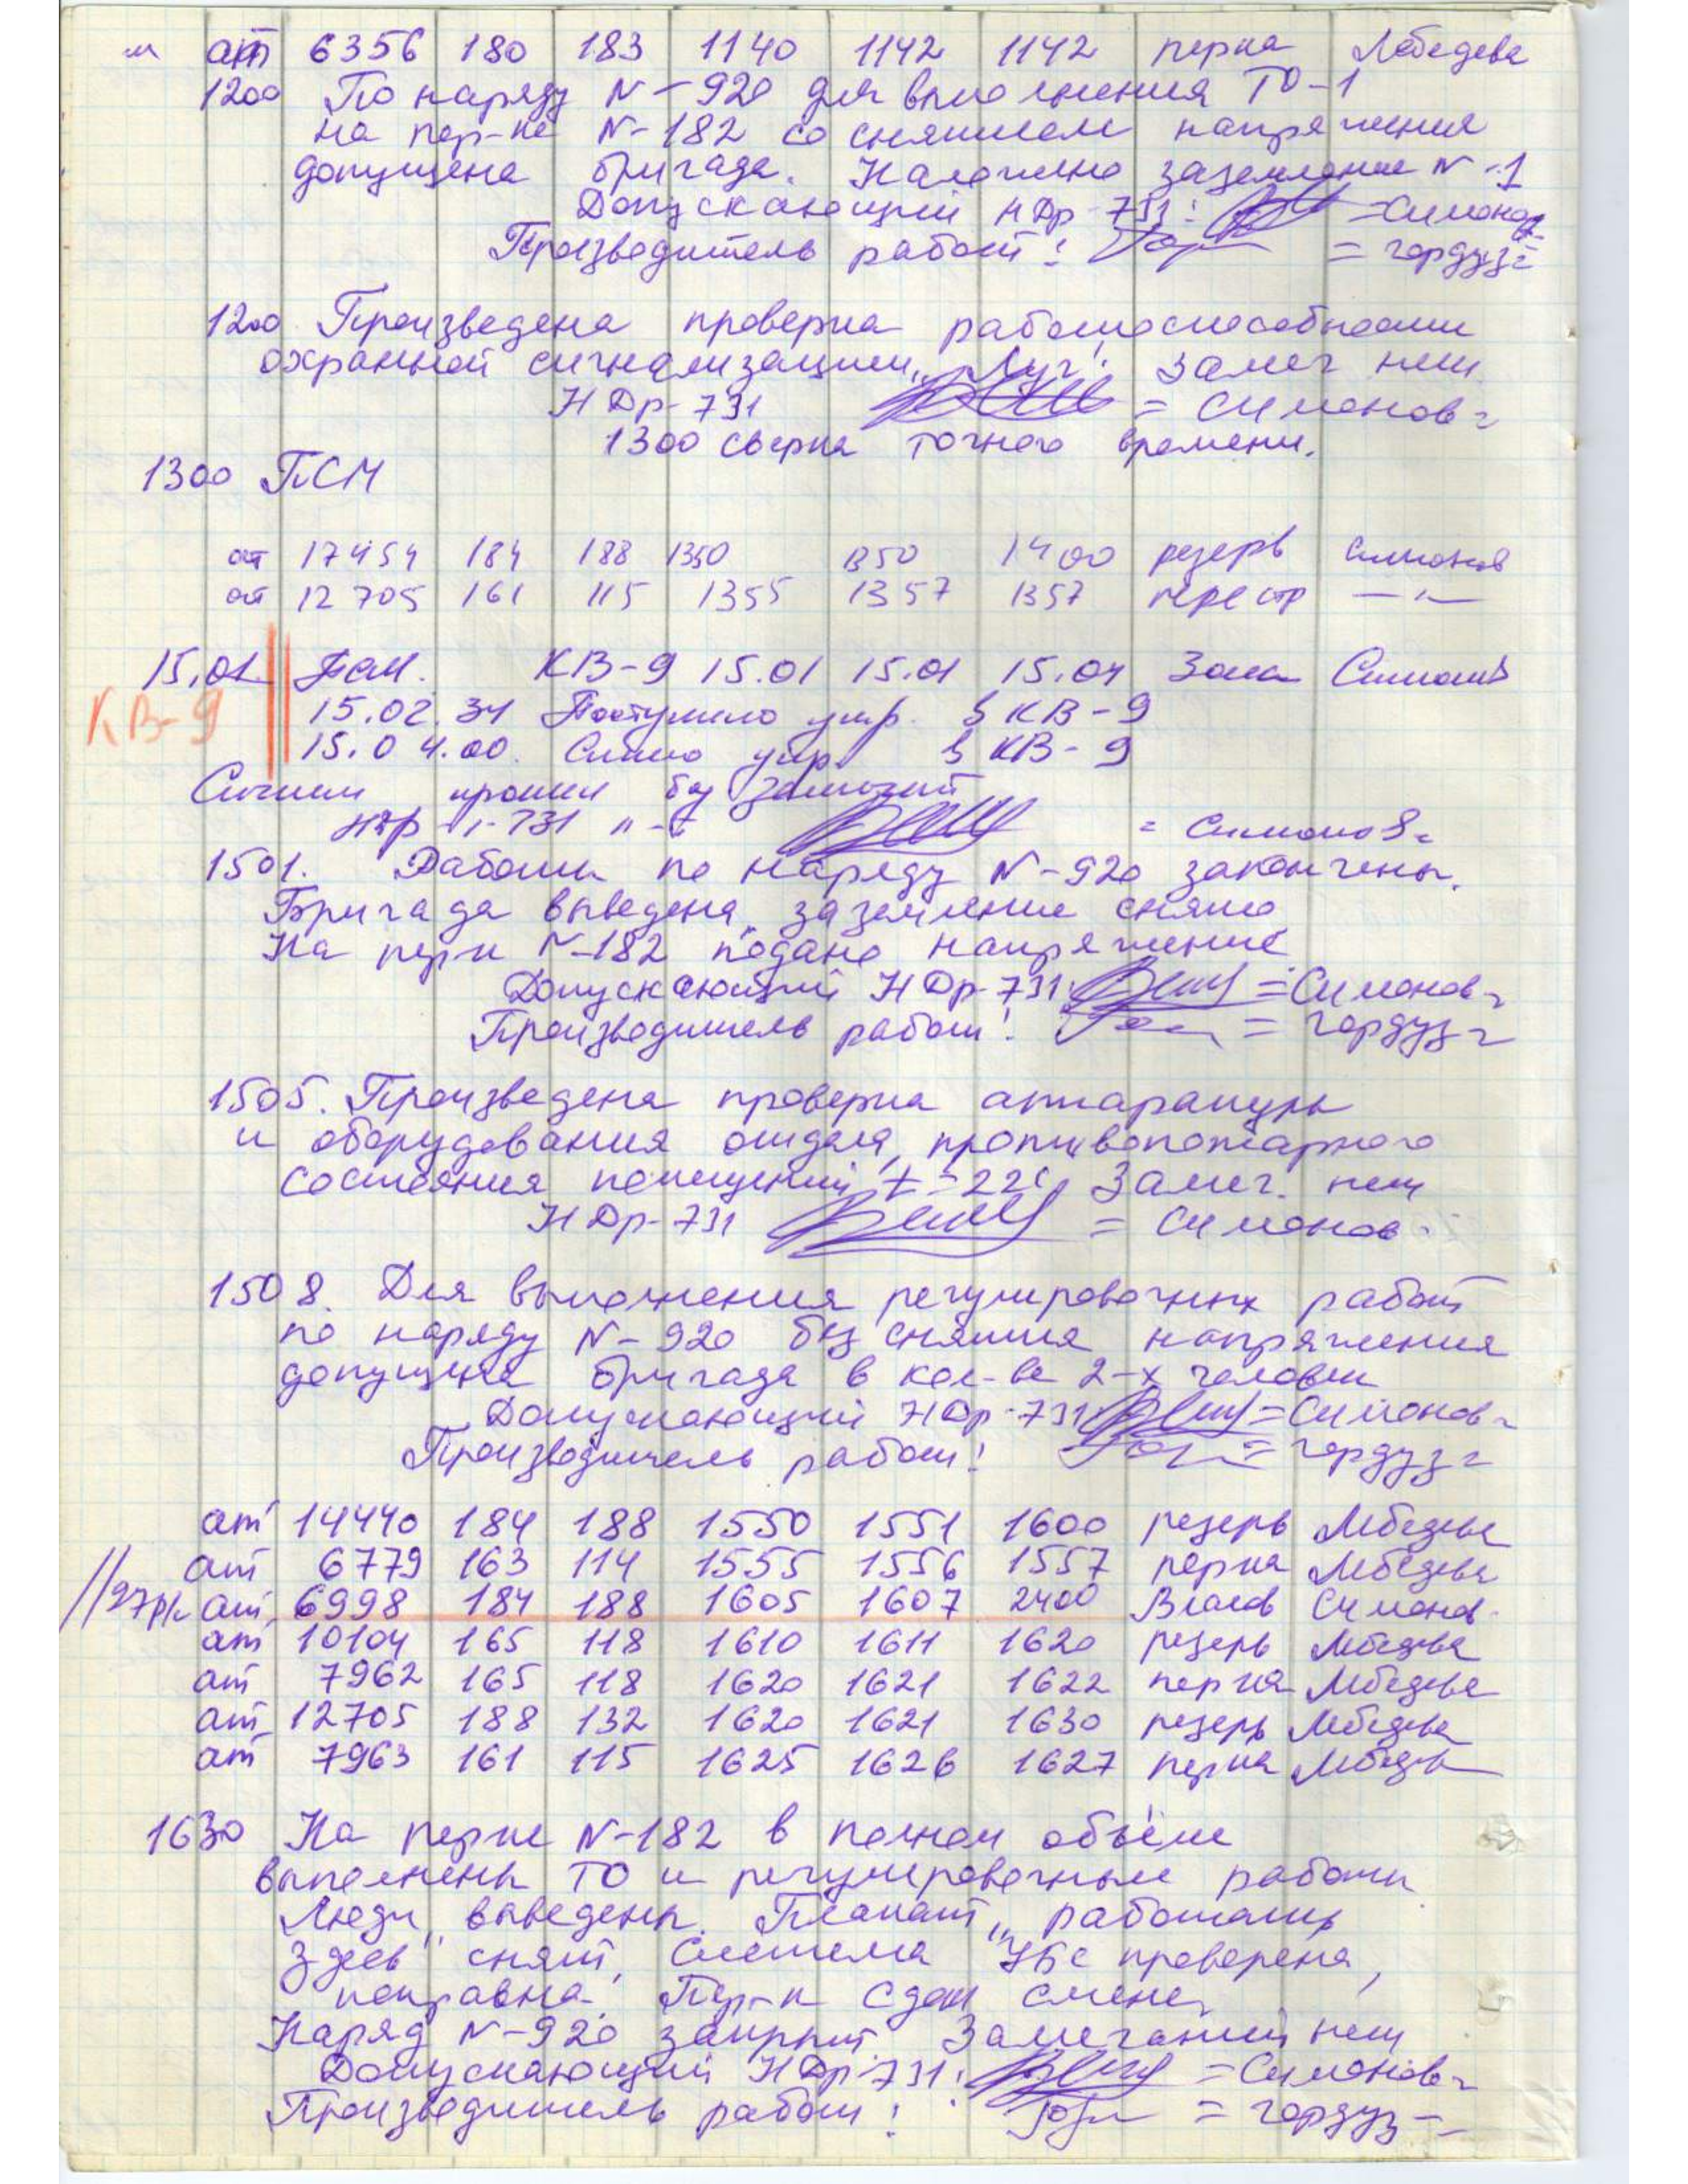 " ат 6356 180 183 1140 1142 1142 перка Лебедева
1200 По наряду N-920 для выполнения ТО-1
на пер-ке N-182 со снятием напряжения
допущена бригада. Наложено заземление N-1
Допускающий НДр-731: =Симонов=
Производитель работ: = гордуз=
1200 Произведена проверка работоспособности
охранной сигнализации „Луч". Замеч нет
НДр-731 = Симонов=
1300 сверка точного времени.
1300 ПСМ
ат 17454 184 188 1350 1350 1400 резерв Симонов
ат 12705 161 115 1355 1357 1357 перестр —"—
15.01 КВ-9 15.01 15.01 15.04 Зона Симонов
КВ-9 15.02.34 Поступило упр. § КВ-9
15.04.00. Снято упр. § КВ-9
прошли без замечаний
731 = Симонов=
1501. Работы по наряду N-920 закончены.
Бригада выведена, заземление снято
На перк N-182 подано напряжение
Допускающий НДр-731: =Симонов=
Производитель работ: = гордуз=
1505. Произведена проверка аппаратуры
и оборудования отдела, противопожарного
состояния помещений, t-22С, Замеч. нет
НДр-731 = Симонов-
1508. Для выполнения регулировочных работ
по наряду N-920 без снятия напряжения
допущена бригада в кол-ве 2-х человек
Допускающий НДр-731: =Симонов=
Производитель работ: = гордуз=
ат 14440 184 188 1550 1551 1600 резерв Лебедева
ат 6779 163 114 1555 1556 1557 перка Лебедева
//97р/к ат 6998 184 188 1605 1607 2400 Власов Симонов.
ат 10104 165 118 1610 1611 1620 резерв Лебедева
ат 7962 165 118 1620 1621 1622 перка Лебедева
ат 12705 188 132 1620 1621 1630 резерв Лебедева
ат 7963 161 115 1625 1626 1627 перка Лебедева
1630 На перке N-182 в полном объёме
выполнены ТО и регулировочные работы
Люди выведены. Плакат „работать
здесь" снят, Система УБС проверена,
исправна. Пер-к сдан смене,
Наряд N-920 закрыт Замечаний нет
Допускающий НДр-731: =Симонов=
Производитель работ: = гордуз=